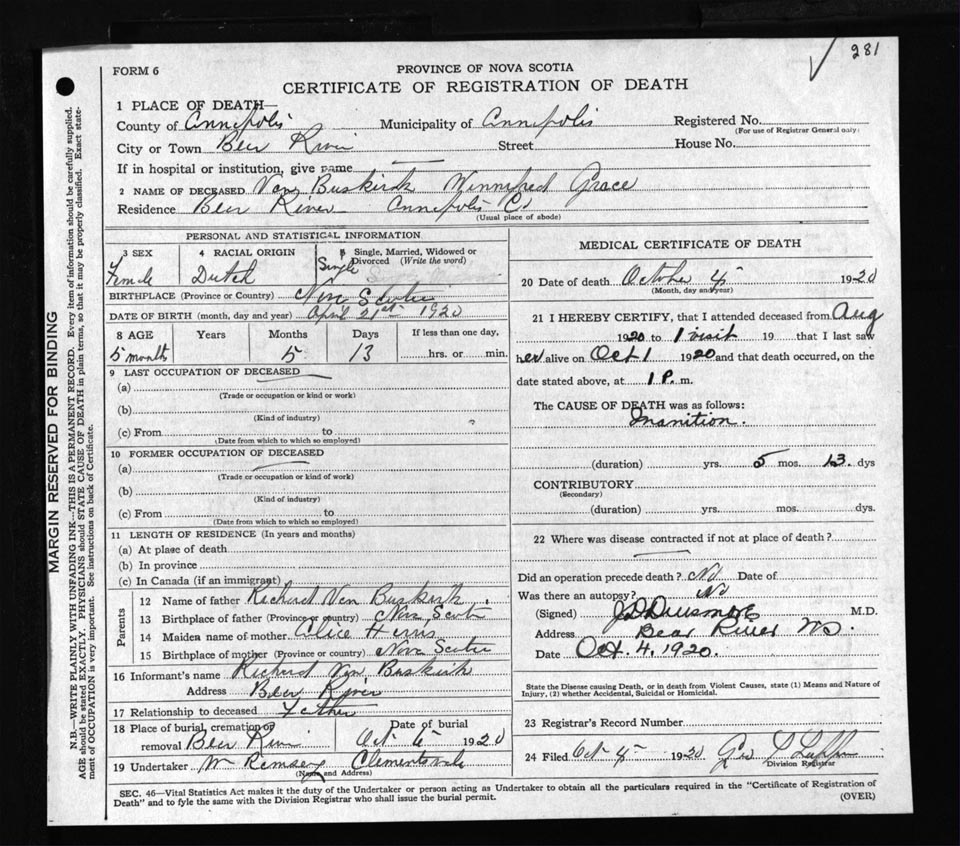 281
FORM 6
PROVINCE OF NOVA SCOTIA
CERTIFICATE OF REGISTRATION OF DEATH
1 PLACE OF DEATH
County of Annapolis Municipality of Annapolis Registered No.
(For use of Registrar General only)
City or Town Bear River Street House No.
If in hospital or institution, give name
2 NAME OF DECEASED Van Buskirk Winnifred Grace
Residence Bear River Annapolis Co
(Usual place of abode)
PERSONAL AND STATISTICAL INFORMATION
3 SEX 4 RACIAL ORIGIN 5 Single, Married, Widowed or Divorced (Write the word)
Female Dutch Single
BIRTHPLACE (Province or Country) Nova Scotia
DATE OF BIRTH (month, day and year) April 21st 1920
8 AGE Years Months Days If less than one day,
5 months 5 13 hrs. or min.
9 LAST OCCUPATION OF DECEASED
(a)
(Trade or occupation or kind or work)
(b)
(Kind of industry)
(c) From to
(Date from which to which so employed)
10 FORMER OCCUPATION OF DECEASED
(a)
(Trade or occupation or kind of work)
(b)
(Kind of industry)
(c) From to
(Date from which to which so employed)
11 LENGTH OF RESIDENCE (In years and months)
(a) At place of death
(b) In province
(c) In Canada (if an immigrant)
Parents
12 Name of father Richard Van Buskirk
13 Birthplace of father (Province or country) Nova Scotia
14 Maiden name of mother Alice
15 Birthplace of mother (Province or country) Nova Scotia
16 Informant's name Richard Van Buskirk
Address Bear River
17 Relationship to deceased Father
18 Place of burial, cremation or removal Bear River Date of burial Oct 6 1920
19 Undertaker Wm Ramsey Clementsvale
(Name and Address)
MEDICAL CERTIFICATE OF DEATH
20 Date of death October 4 1920
(Month, day and year)
21 I HEREBY CERTIFY, that I attended deceased from Aug
1920 to 1 visit 19 that I last saw
her alive on Oct 1 1920 and that death occurred, on the
date stated above, at 1 P. m.
The CAUSE OF DEATH was as follows:
Inanition.
(duration) yrs. 5 mos. 13. dys
CONTRIBUTORY
(Secondary)
(duration) yrs. mos. dys.
22 Where was disease contracted if not at place of death?
Did an operation precede death? No Date of
Was there an autopsy? No
(Signed) M.D.
Address Bear River NS.
Date Oct. 4, 1920.
State the Disease causing Death, or in death from Violent Causes, state (1) Means and Nature of
Injury, (2) whether Accidental, Suicidal or Homicidal.
23 Registrar's Record Number
24 Filed Oct 1920 Geo
Division Registrar
SEC. 46—Vital Statistics Act makes it the duty of the Undertaker or person acting as Undertaker to obtain all the particulars required in the "Certificate of Registration of
Death" and to fyle the same with the Division Registrar who shall issue the burial permit.
(OVER)
MARGIN RESERVED FOR BINDING
N.B.—WRITE PLAINLY WITH UNFADING INK—THIS IS A PERMANENT RECORD. Every item of information should be carefully supplied.
AGE should be stated EXACTLY. PHYSICIANS should STATE CAUSE OF DEATH in plain terms, so that it may be properly classified. Exact state-
ment of OCCUPATION is very important. See instructions on back of Certificate.